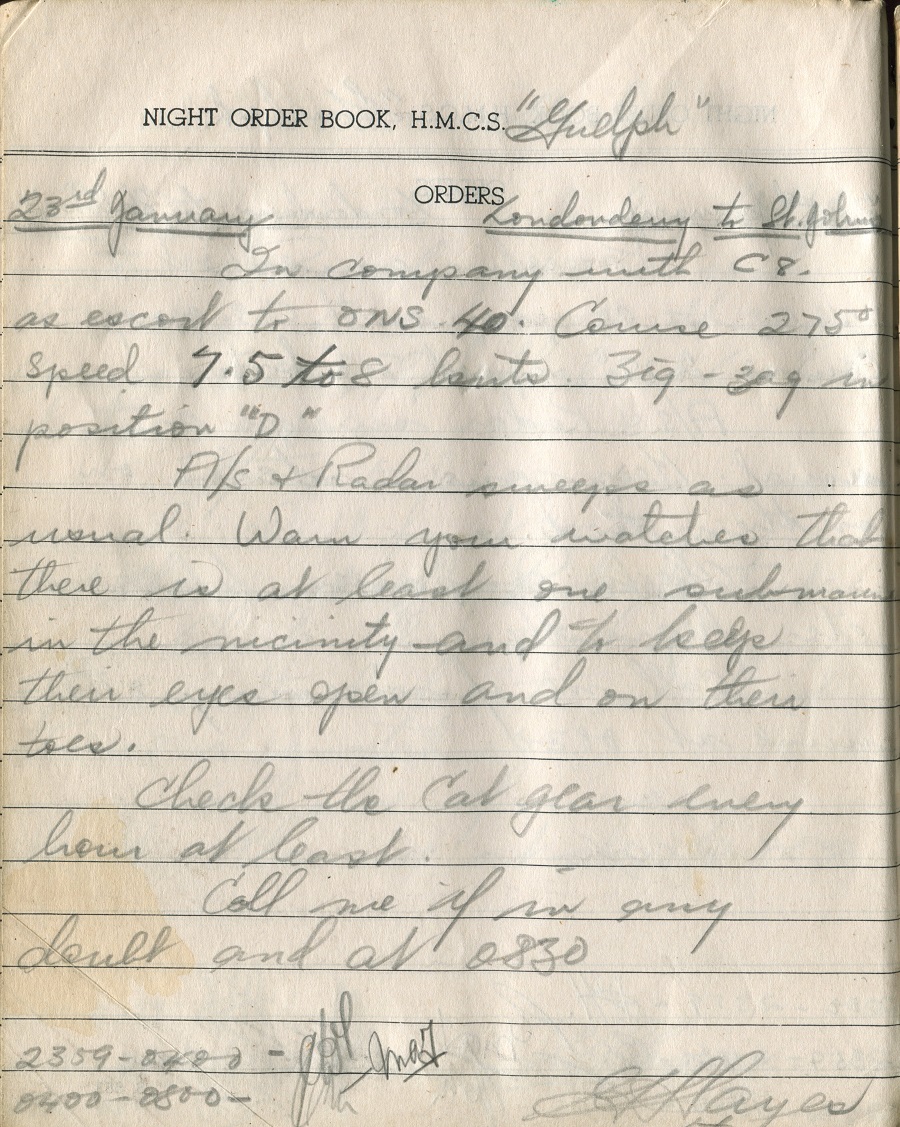 NIGHT ORDER BOOK, H.M.C.S. "Guelph"
ORDERS
23rd January Londonderry to St. John's
In company with C8.
as escort to ONS 40. Course 275°
speed 7.5 to 8 knots. Zig-zag in
position "D"
A/S & Radar sweeps as
usual. Warn your watches that
there is at least one submarine
in the vicinity and to keep
their eyes open and on their
toes.
Check the Cat gear every
hour at least.
Call me if in any
doubt and at 0830
2359-0400 -
0400-0800-
Hayes